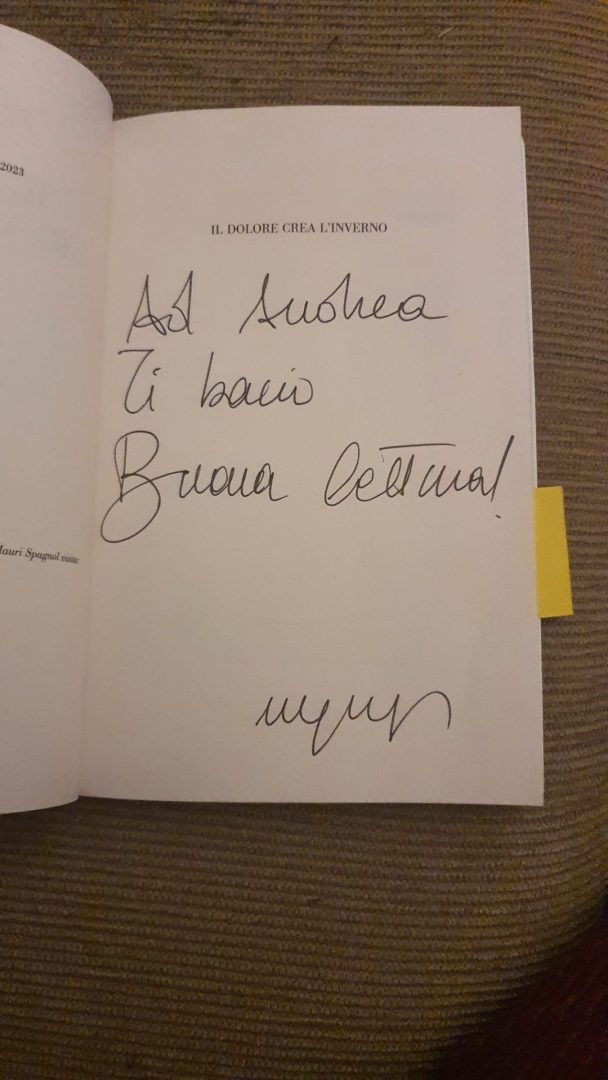 2023
IL DOLORE CREA L'INVERNO
Ad Andrea
Ti bacio
Buona lettura!
Mauri Spagnol visita: